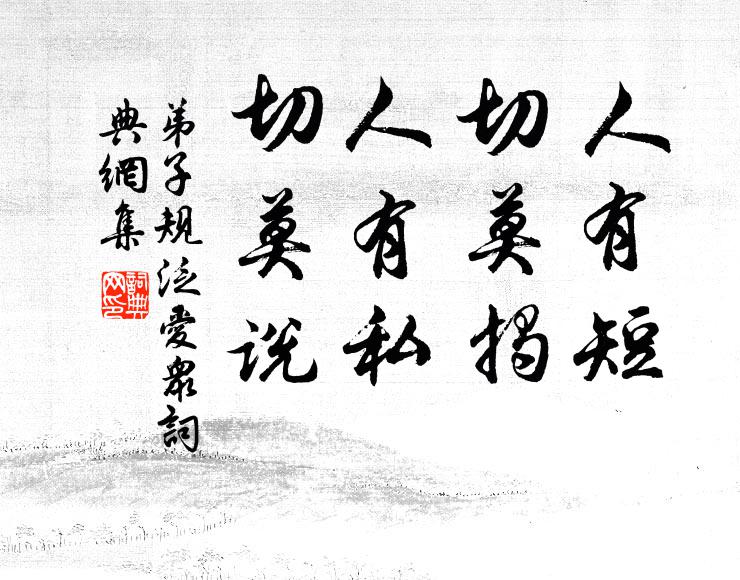 人有短
切莫揭
人有私
切莫说
弟子规泛愛眾詞
典網集
詞典
网印